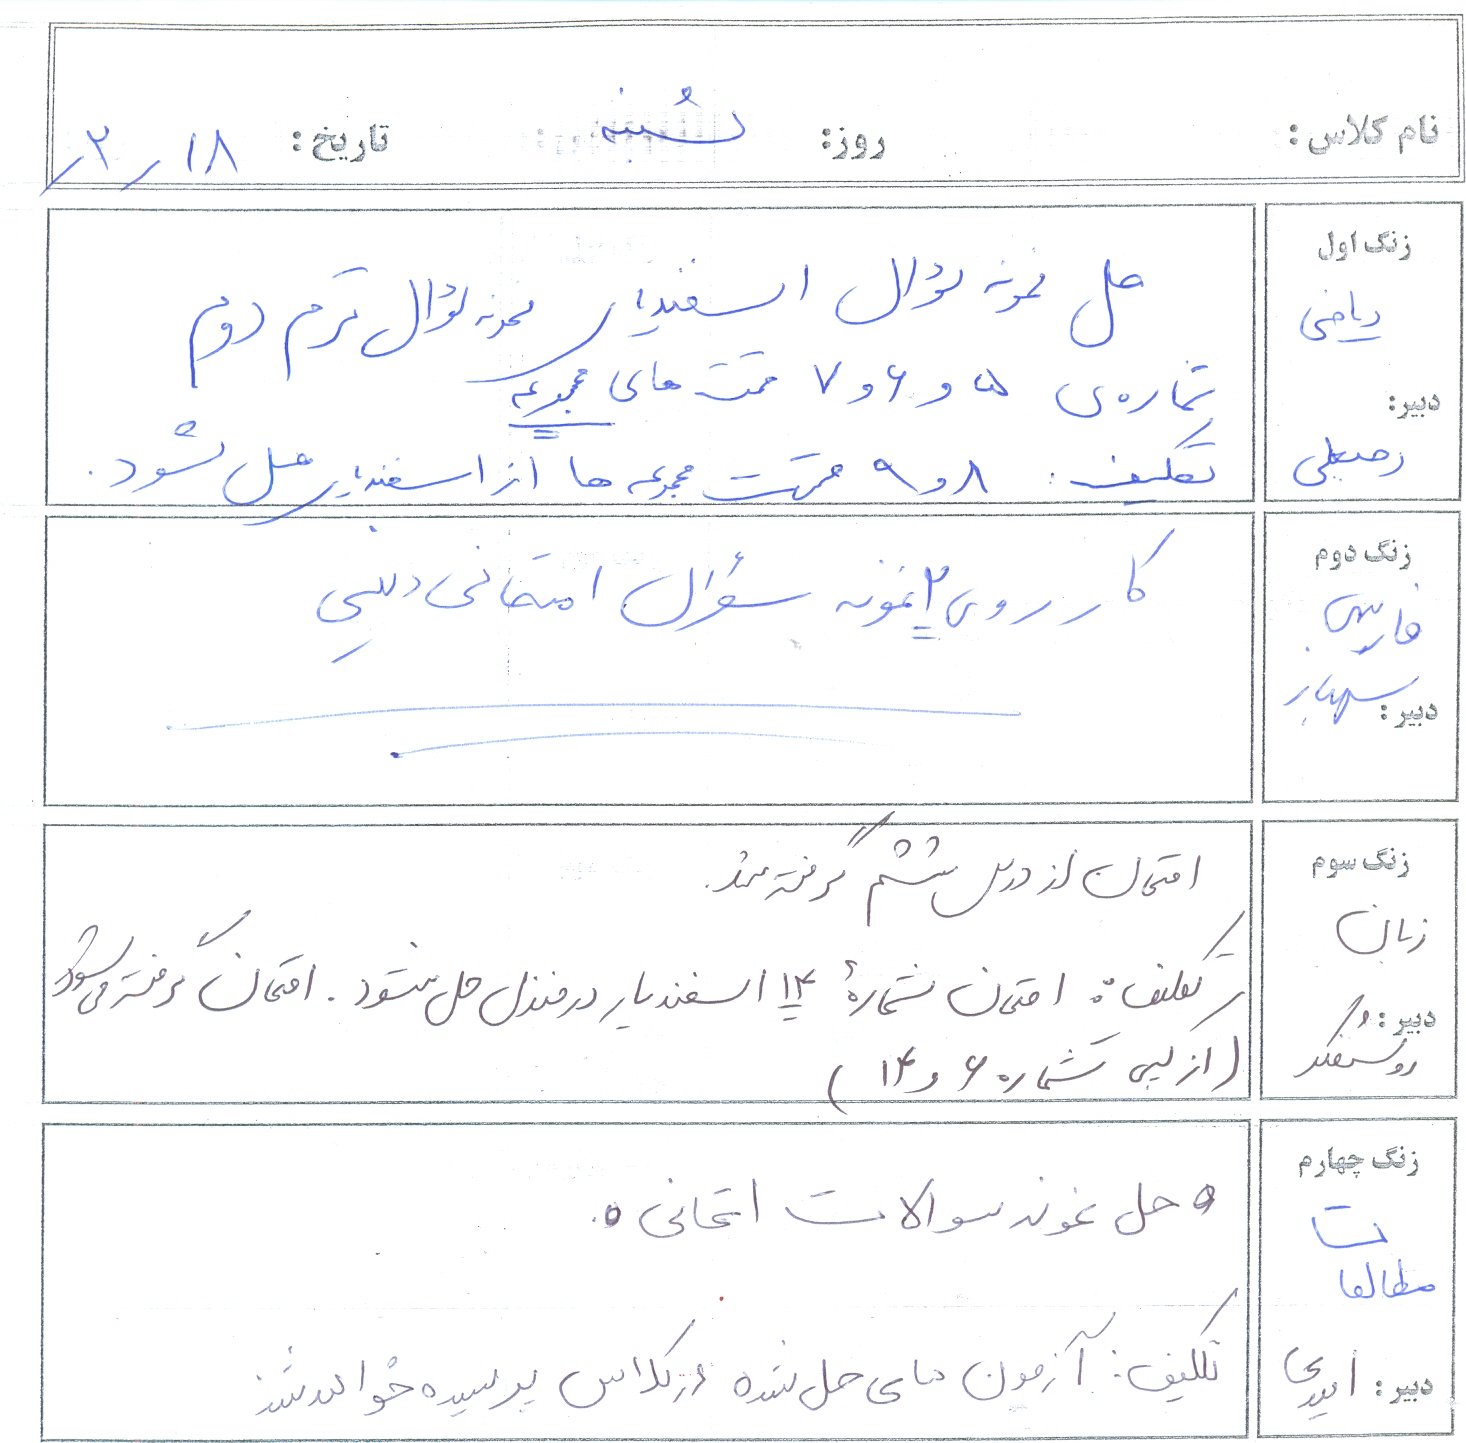 نام کلاس : روز: شنبه تاریخ : ۱۸ / ۲ /
زنگ اول
ریاضی
دبیر:
حل نمونه سؤال اسفندیار نمونه سؤال ترم دوم
شماره ی ۵ و ۶ و ۷ قسمت های مجموعه
تکلیف : ۸ و ۹ قسمت مجموعه ها از اسفندیار حل شود .
زنگ دوم
فارسی
دبیر :
کار روی ۲ نمونه سؤال امتحانی
زنگ سوم
زبان
دبیر :
روشنفکر
امتحان از درس ششم گرفته شد.
تکلیف : امتحان شمارهٔ ۱۴ اسفندیار در منزل حل شود . امتحان گرفته می شود
( از کپی شماره ۶ و ۱۴ )
زنگ چهارم
مطالعات
دبیر : امیدی
حل نمونه سوالات امتحانی .
تکلیف : آزمون های حل شده در کلاس پرسیده خواهد شد